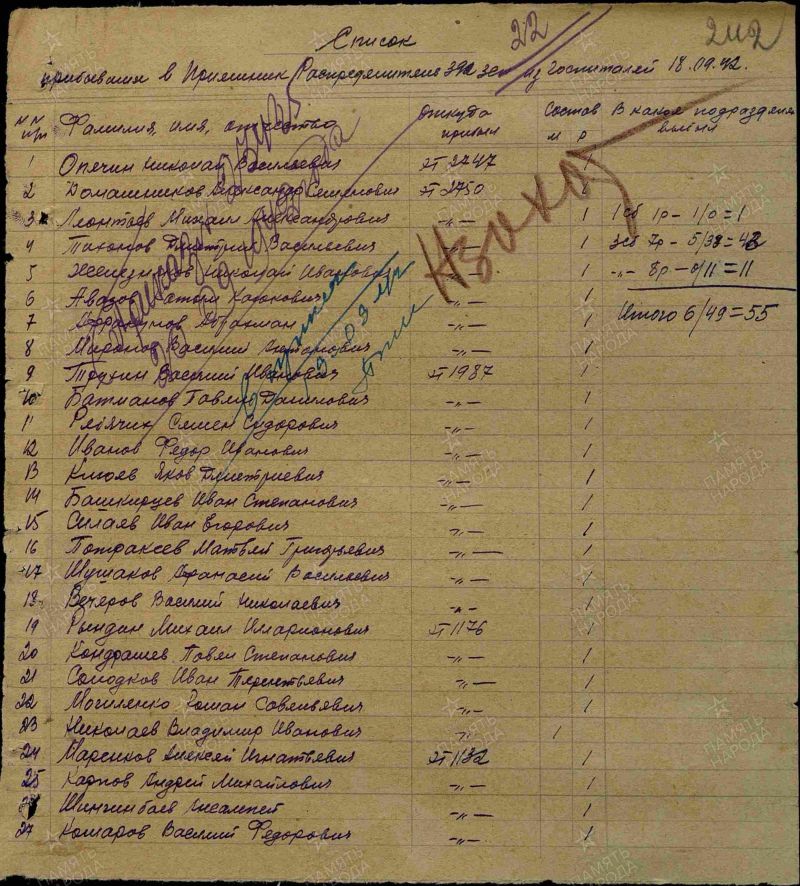 22
242
Список
прибывших в Приемник Распределитель 392 зсп из госпиталей 18.09.42.
№№ п/п Фамилия, имя, отчество Откуда прибыл Состав м р В какое подразделен. выбыл
1 Опячин Николай Васильевич ЭГ 2747 1
2 Домашников Александр Семенович ЭГ 2750
3 Леонтьев Михаил Александрович -„- 1 1 сб 1р - 1/0 = 1
4 Тихомов Дмитрий Васильевич -„- 1 3сб 7р - 5/38 = 43
5 Железняков Николай Иванович -„- 1 -„- 8р - 0/11 = 11
6 Авазов -„- 1
7 -„- 1 Итого 6/49 = 55
8 Миронов Василий Антонович -„- 1
9 Трухин Василий Иванович ЭГ 1987 1
10 Батманов Павел Данилович -„- 1
11 Рябчик Семен Сидорович -„- 1
12 Иванов Федор Иванович -„- 1
13 Яков Дмитриевич -„- 1
14 Башкирцев Иван Степанович -„- 1
15 Силаев Иван Егорович -„- 1
16 Матвей Григорьевич -„- 1
17 Шушаков Афанасий Васильевич -„- 1
18 Вечеров Василий Николаевич -„- 1
19 Рындин Михаил Иларионович ЭГ 1176 1
20 Кондрашев Павел Степанович -„- 1
21 Солодков Иван Терентьевич -„- 1
22 Могиленко Роман Савельевич -„- 1
23 Николаев Владимир Иванович -„- 1
24 Марсиков Алексей Игнатьевич ЭГ 1132 1
25 Карпов Андрей Михайлович -„- 1
Шингинбаев -„- 1
27 Комаров Василий Федорович -„- 1
ПАМЯТЬ НАРОДА